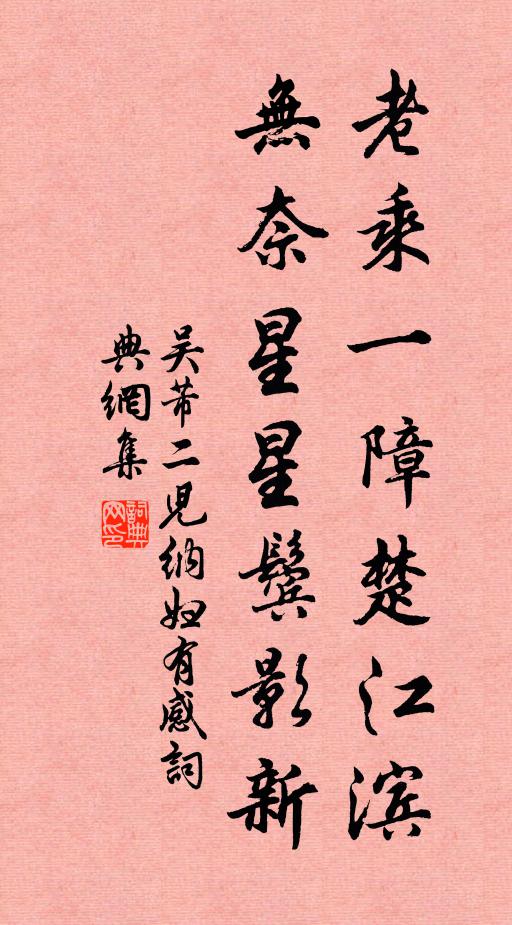 老乘一障楚江滨
無奈星星鬓影新
吴芾二児納妇有感詞
典網集
詞典
网印